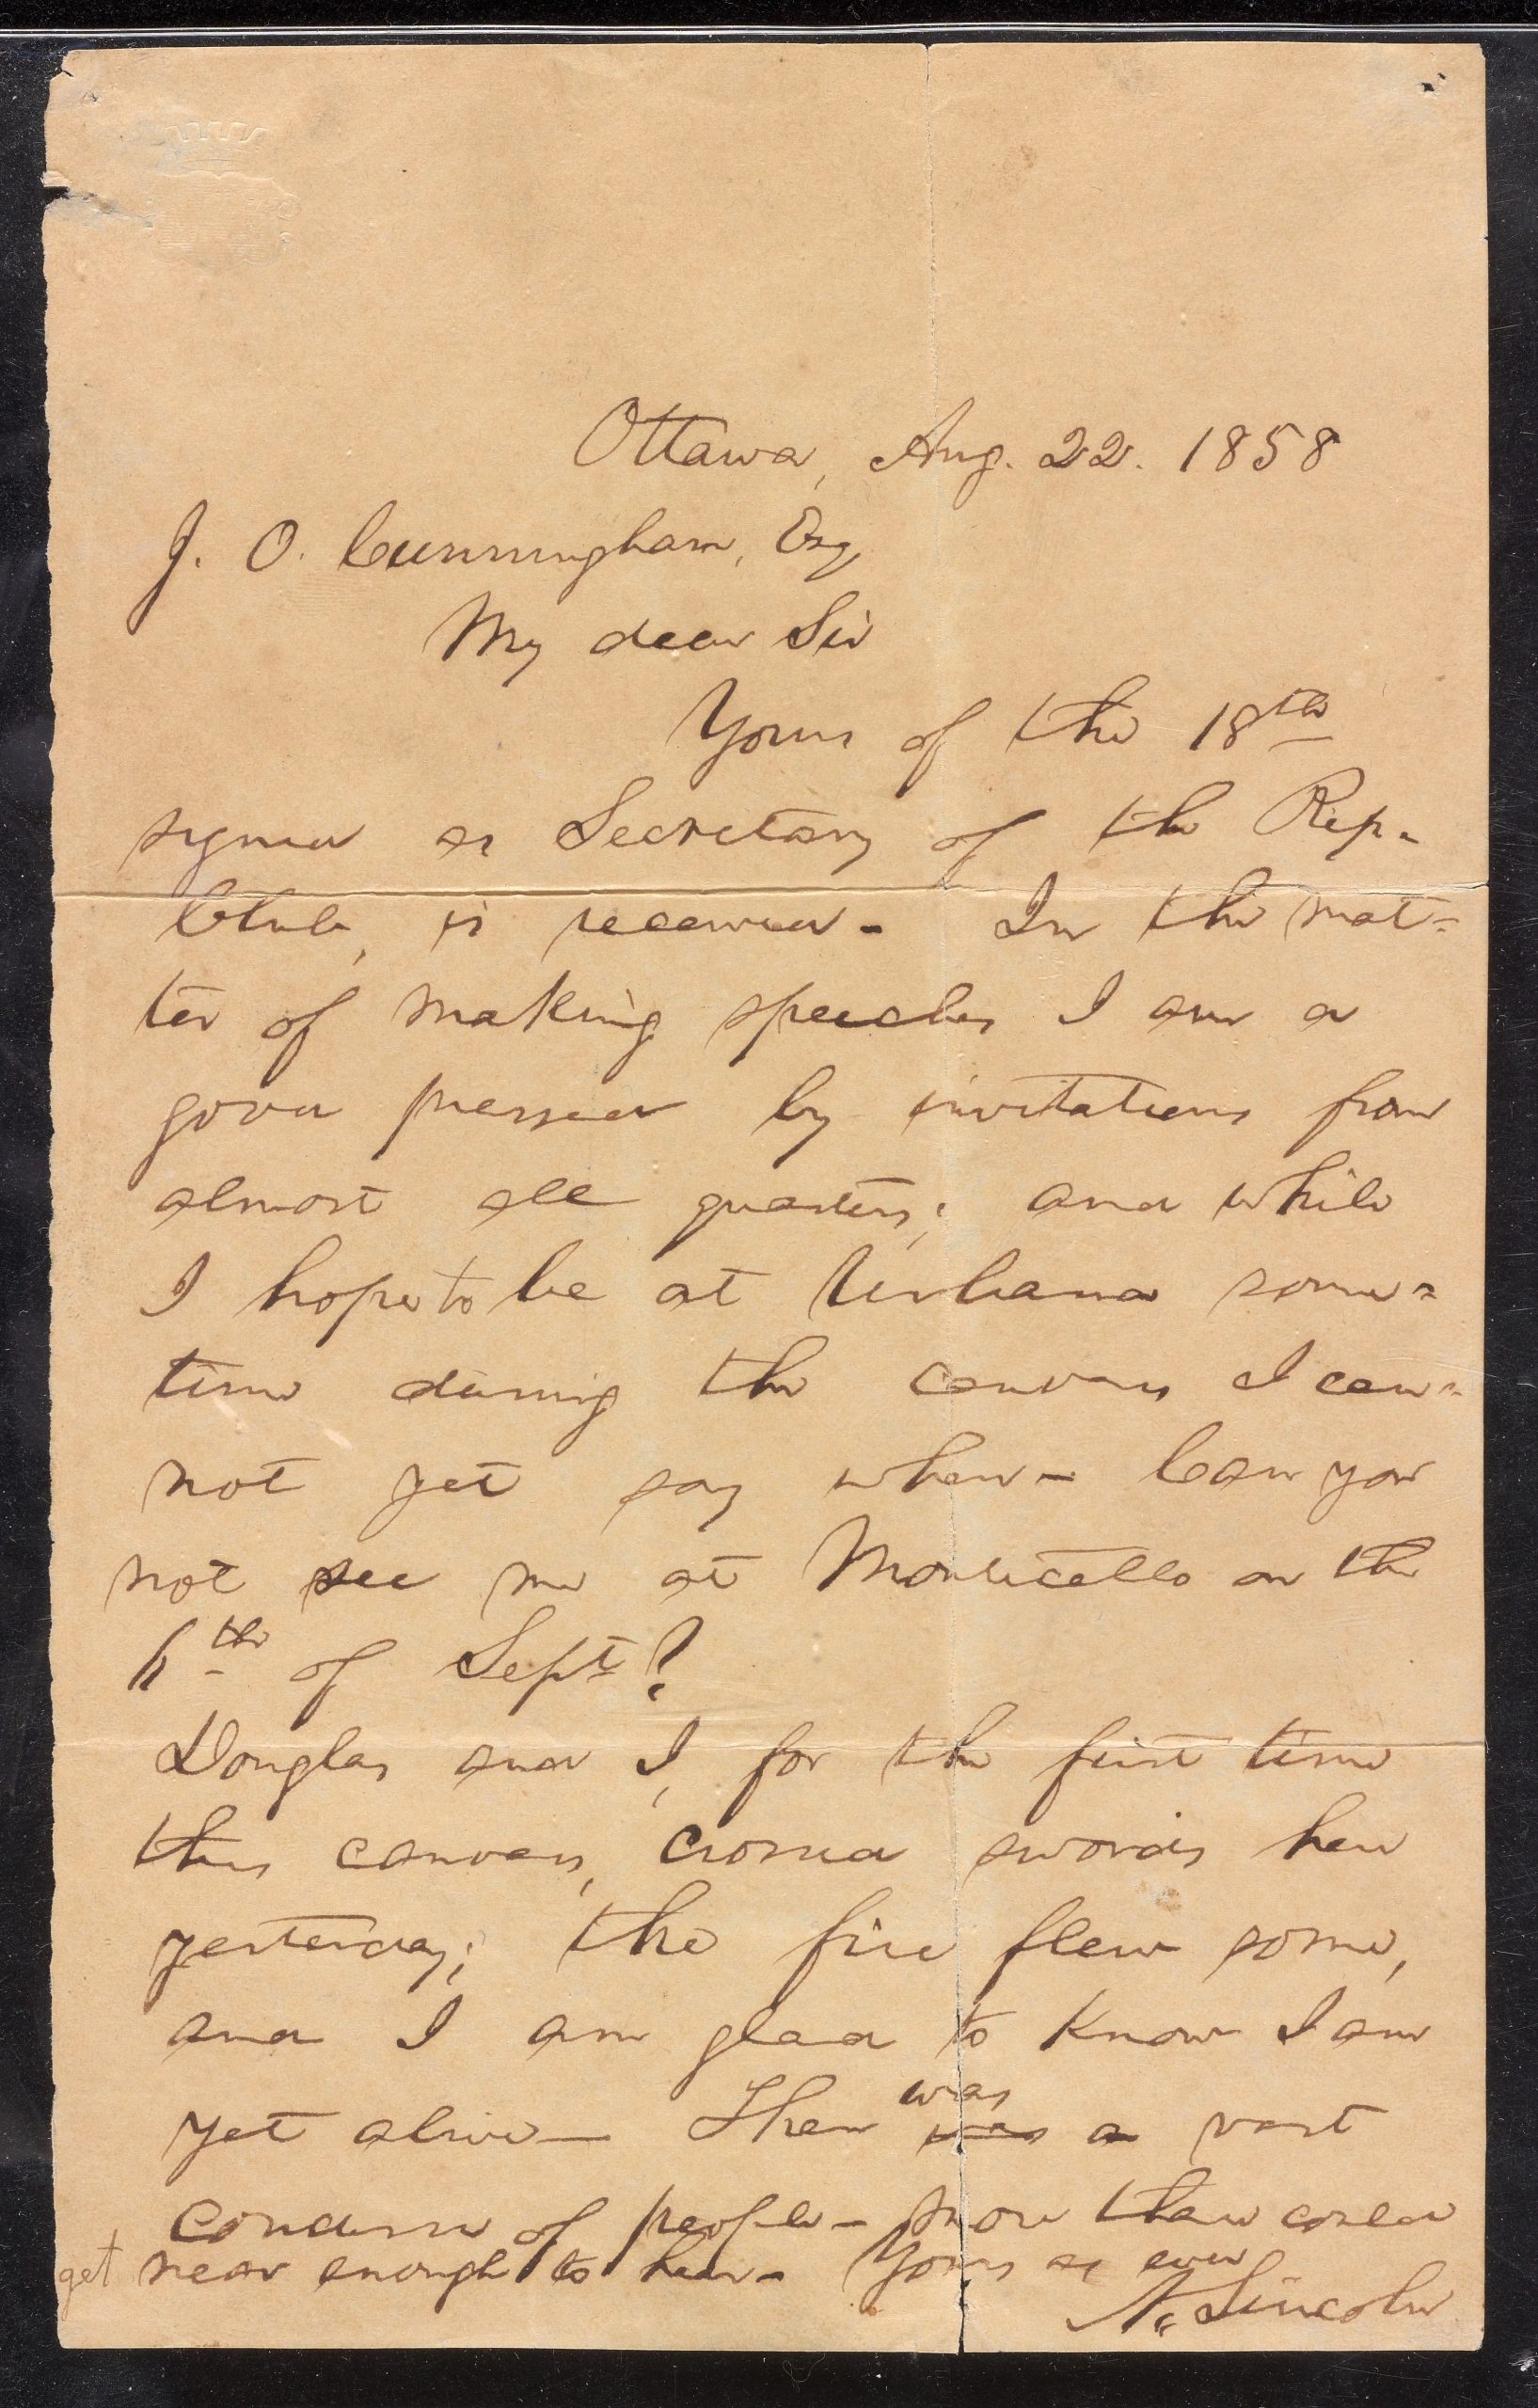 Ottawa, Aug. 22. 1858
J. O. Cunningham, Esq,
My dear Sir
Yours of the 18th
signed as Secretary of the Rep-
Club, is received- In the mat=
ter of making speeches I am a
good pressed by invitations from
almost all quarters; and while
I hope to be at Urbana some=
time during the canvass I can=
not yet say when- Can you
not see me at Monticello on the
6th of Sept?
Douglas and I, for the first time
this canvass, crossed swords here
yesterday; the fire flew some,
and I am glad to know I am
yet alive- There was
was a vast
concourse of people- more than could
get near enough to hear- Yours as ever
A. Lincoln